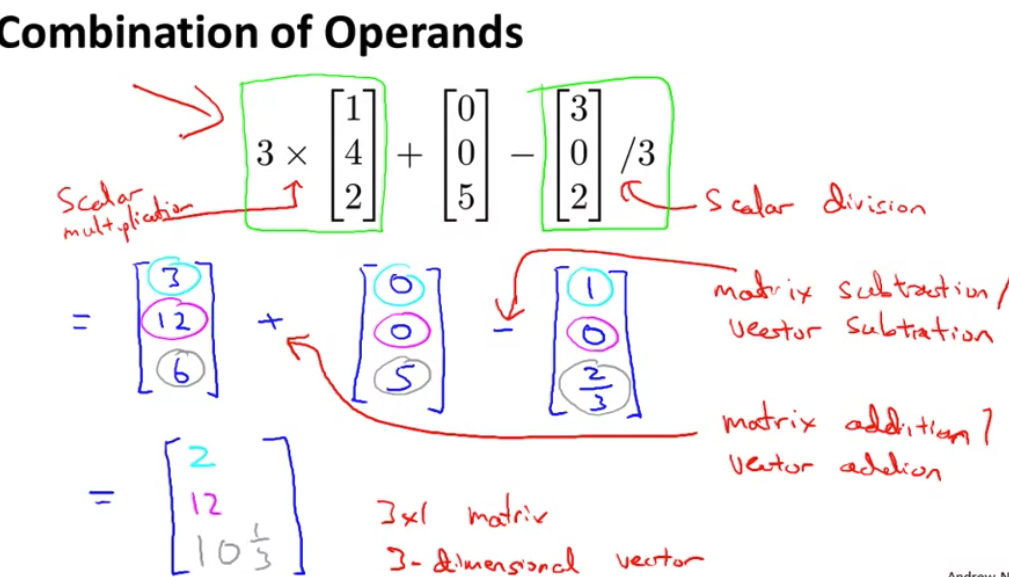 Combination of Operands
3 × [1 4 2] + [0 0 5] − [3 0 2] /3
Scalar
multiplication
Scalar division
= [3 12 6] + [0 0 5] - [1 0 2/3]
matrix subtraction /
vector subtration
matrix addition /
vector
= [2 12 10 1/3]
3x1 matrix
3-dimensional vector
Andrew N